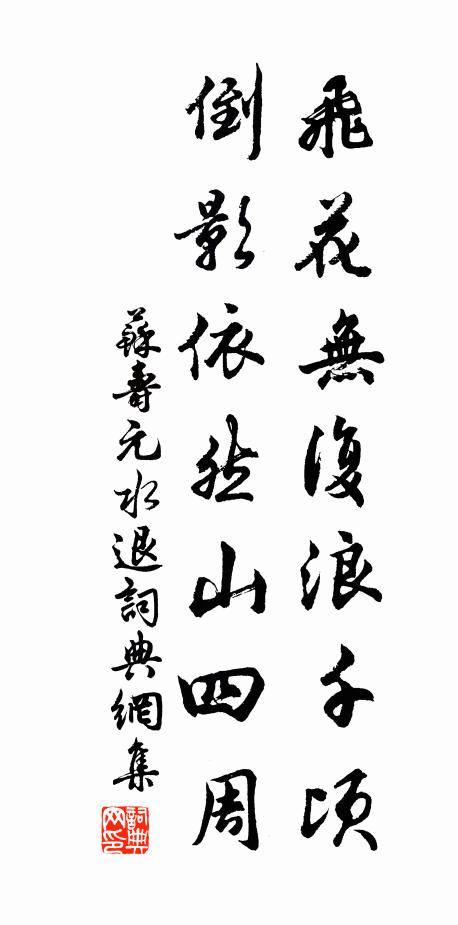 飛花無復浪千頃
倒影依然山四周
蘇壽元水退詞典網集
詞典網印